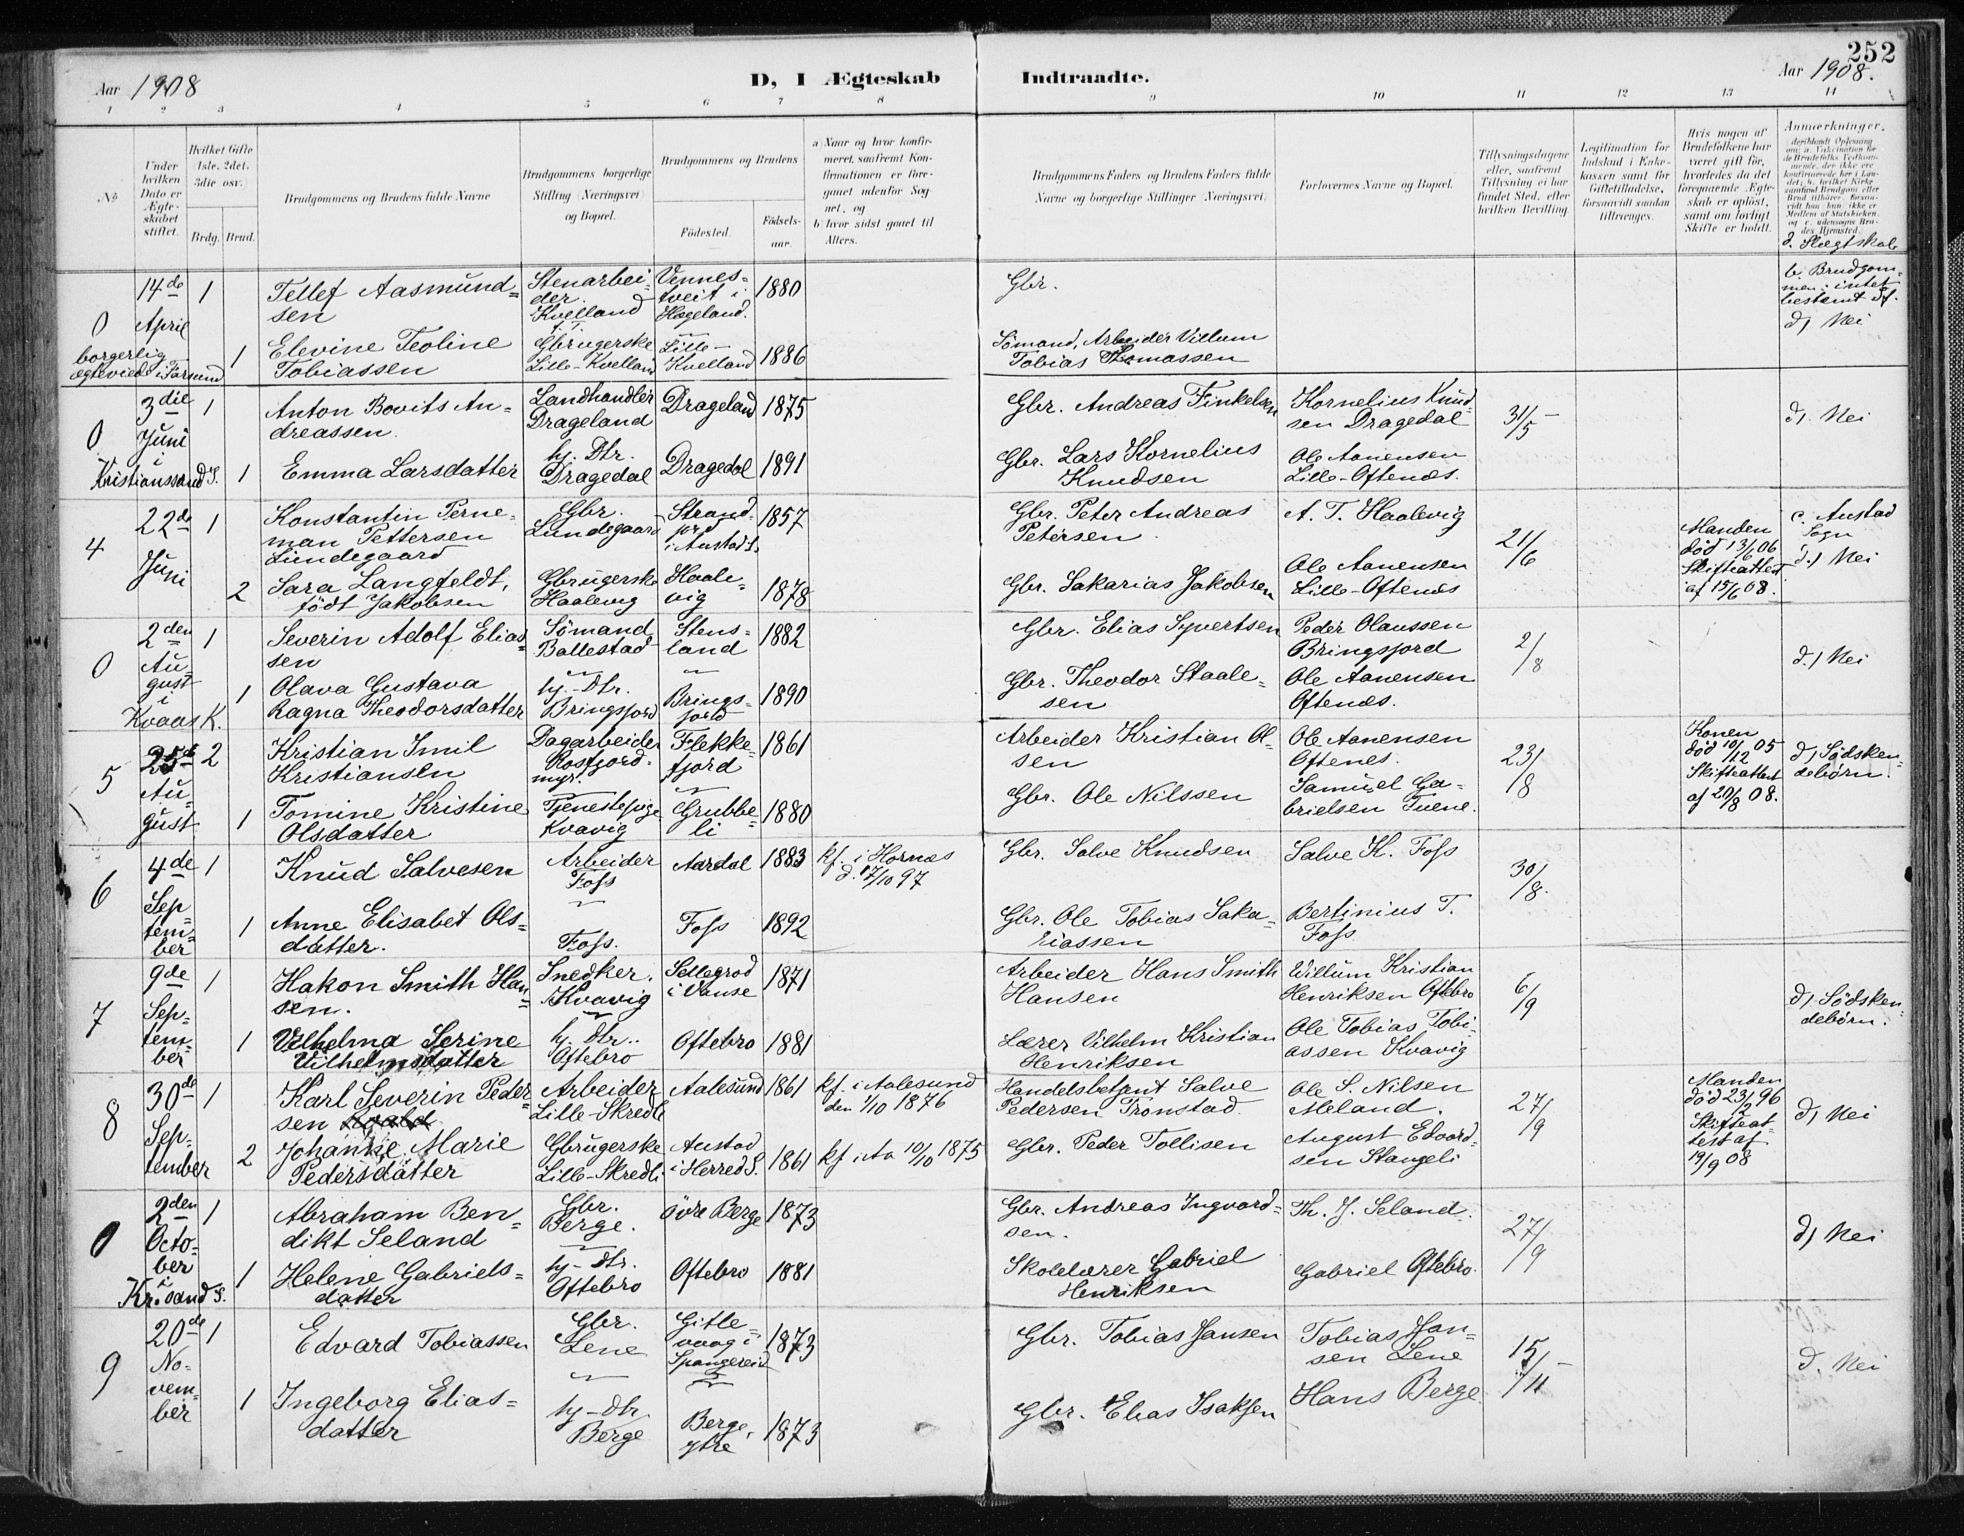 252
Aar 1908
D, I Ægteskab Indtraadte.
Aar 1908.
1 2 3 4 5 6 7 8 9 10 11 12 13 14
No
Under hvilken Dato er Ægteskabet stiftet.
Hvilket Gifte 1ste. 2det. 3die osv.
Brdg. Brud.
Brudgommens og Brudens fulde Navne
Brudgommens borgerlige Stilling (Næringsvei) og Bopæl.
Brudgommens og Brudens
Fødested. Fødsels-aar.
a) Naar og hvor konfirmeret, saafremt Konfirmationen er foregaaet udenfor Sognet, og
b) hvor sidst gaaet til Alters.
Brudgommens Faders og Brudens Faders fulde Navne og borgerlige Stillinger (Næringsvei).
Forlovernes Navne og Bopæl.
Tillysningsdagene eller, saafremt Tillysning ei har fundet Sted, efter hvilken Bevilling
Legitimation for Indskud i Enkekassen samt for Giftetilladelse, forsaavidt saadan tiltrænges.
Hvis nogen af Brudefolkene har været gift før, hvorledes da det foregaaende Ægteskab er opløst, samt om lovligt Skifte er holdt.
Anmærkninger,
d. Slægtskab
0 borgerlig ægteviede i Farsund
14de April
1
Tellef Aasmundsen
Stenarbeider. Kvelland
Vennestveit i Hægeland.
1880
Gbr.
b. Brudgommen: intet bestemt df.
d) Nei
1
Elevine Teoline Tobiassen
Gbrugerske Lille-Kvelland
Lille-Kvelland
1886
Sömand, Arbeider Villum Tobias Thomassen
0
3die Juni i Kristianssand S.
1
Anton Bovits Andreassen.
Landhandler Drageland
Drageland
1875
Gbr. Andreas Finkelsen
Kornelius Knudsen Dragedal
31/5
d). Nei
1
Emma Larsdatter
hj. Dtr. Dragedal
Dragedal
1891
Gbr. Lars Kornelius Knudsen
Ole Aanensen Lille-Oftenæs.
4
22de Juni
1
Konstantin Perneman Pettersen Lundegaard
Gbr. Lundegaard
Strandfjord i Austad S.
1857
Gbr. Peter Andreas Petersen
A. T. Haalevig
21/6
Manden död 13/6 06 Skifteattest af 15/6 08.
c. Austad Sogn
d.) Nei
2
Sara Langfeldt, födt Jakobsen
Gbrugerske Haalevig
Haalevig
1878
Gbr. Sakarias Jakobsen
Ole Aanensen Lille-Oftenæs
0
2den August i Kvaas K.
1
Severin Adolf Eliassen
Sömand Ballestad
Stensland
1882
Gbr. Elias Syvertsen
Peder Olaussen Bringsjord
2/8
d.) Nei
1
Olava Gustava Ragna Theodorsdatter
hj-Dtr. Bringsjord
Bringsjord
1890
Gbr. Theodor Staalesen
Ole Aanensen Oftenæs.
5
25de August
2
Kristian Imil Kristiansen
Dagarbeider Rosfjordmyr.
Flekkefjord
1861
Arbeider Kristian Olsen
Ole Aanensen Oftenes.
23/8
Konen död 10/12 05 Skifteattest af 20/8 08.
d) Södskendebørn.
1
Tomine Kristine Olsdatter
Tjenestepige Kvavig
Grubbeli
1880
Gbr. Ole Nilssen
Samuel Gabrielsen Tuene.
6
4de September
1
Knud Salvesen
Arbeider Foss
Aardal
1883
kf. i Hornæs d. 17/10 97
Gbr. Salve Knudsen
Salve K. Foss
30/8.
1
Anne Elisabet Olsdatter.
Foss.
Foss
1892
Gbr. Ole Tobias Sakariassen
Bertinius T. Foss
7
9de September
1
Hakon Smith Hansen.
Snedker. Kvavig
Sellegrod i Vanse
1871
Arbeider Hans Smith Hansen
Willum Kristian Henriksen Oftebro
6/9
d) Södskendebørn.
1
Vilhelma Serine Vilhelmsdatter
hj. Dtr.. Oftebro
Oftebro
1881
Lærer Vilhelm Kristian Henriksen
Ole Tobias Tobiassen Kvavig
8
30de September
1
Karl Severin Pedersen
Arbeider Lille-Skredli
Aalesund
1861
kf. i Aalesund den 1/10 1876
Handelsbetjent Salve Pedersen Tronstad.
Ole S. Nilsen Meland.
27/9
Manden död 23/12 96 Skifteattest af 19/9 08
d) Nei
2
Johanne Marie Pedersdatter
Gbrugerske Lille-Skredli
Austad i Herred S.
1861
kf i Au 10/10 1875
Gbr. Peder Tollisen
August Edvardsen Stangeli
0
2den October i Krisand S.
1
Abraham Bendikt Seland
Gbr. Berge.
övre Berge
1873
Gbr. Andreas Ingvardsen.
Th. J. Seland.
27/9
d) Nei
1
Helene Gabrielsdatter
hj-Dtr. Oftebro
Oftebro
1881
Skolelærer Gabriel Henriksen
Gabriel Oftebro.
9
20de November
1
Edvard Tobiassen
Gbr. Lene
Gitlevaag i Spangereid
1873
Gbr. Tobias Jansen
Tobias Jansen Lene
15/11
d. Nei
1
Ingeborg Eliasdatter
hj-Dtr Berge
Berge, ytre
1873
Gbr. Elias Isaksen
Hans Berge